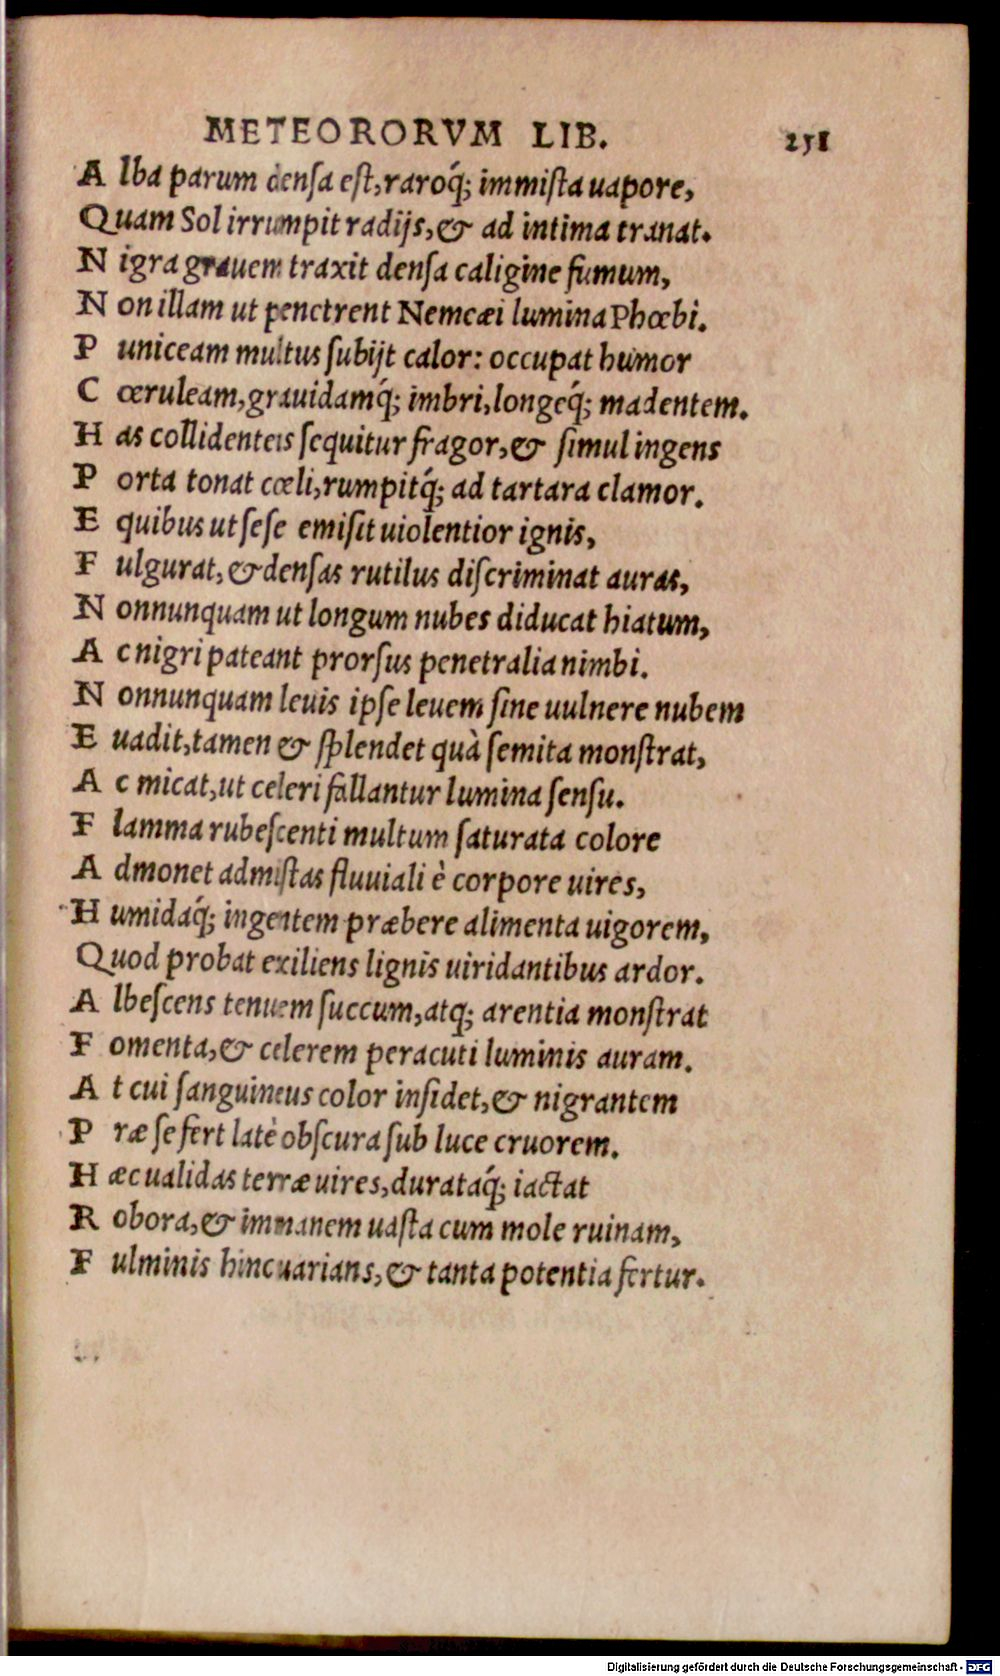 METEORORVM LIB. 251
A lba parum densa est, raroq́; immista uapore,
Quam Sol irrumpit radijs, & ad intima tranat.
N igra grauem traxit densa caligine fumum,
N on illam ut penetrent Nemeæi lumina Phœbi.
P uniceam multus subijt calor: occupat humor
C œruleam, grauidamq́; imbri, longeq́; madentem.
H as collidenteis sequitur fragor, & simul ingens
P orta tonat cœli, rumpitq́; ad tartara clamor.
E quibus ut sese emisit uiolentior ignis,
F ulgurat, & densas rutilus discriminat auras,
N onnunquam ut longum nubes diducat hiatum,
A c nigri pateant prorsus penetralia nimbi.
N onnunquam leuis ipse leuem sine uulnere nubem
E uadit, tamen & splendet quà semita monstrat,
A c micat, ut celeri fallantur lumina sensu.
F lamma rubescenti multum saturata colore
A dmonet admistas fluuiali è corpore uires,
H umidaq́; ingentem præbere alimenta uigorem,
Quod probat exiliens lignis uiridantibus ardor.
A lbescens tenuem succum, atq; arentia monstrat
F omenta, & celerem peracuti luminis auram.
A t cui sanguineus color insidet, & nigrantem
P ræ se fert latè obscura sub luce cruorem.
H æc ualidas terræ uires, durataq́; iactat
R obora, & immanem uasta cum mole ruinam,
F ulminis hinc uarians, & tanta potentia fertur.
Digitalisierung gefördert durch die Deutsche Forschungsgemeinschaft - DFG